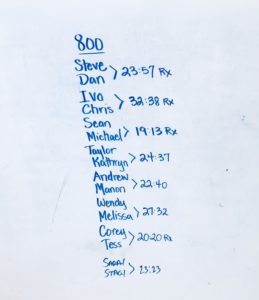 800
Steve
Dan > 23:57 Rx
Ivo
Chris > 32:38 Rx
Sean
Michael > 19:13 Rx
Taylor
Kathryn > 24:37
Andrew
Manon > 22:40
Wendy
Melissa > 27:32
Corey
Tess > 20:20 Rx
Sarah
Staci > 23:23